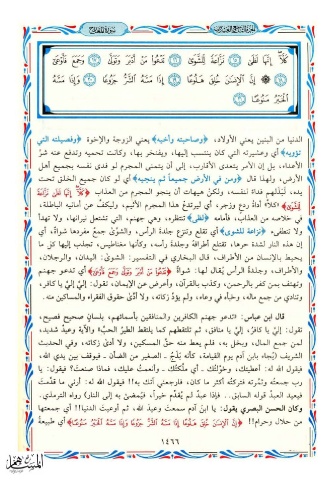 سورة المعارج
كَلَّا إِنَّهَا لَظَى ١٥ نَزَّاعَةً لِّلشَّوَى ١٦ تَدْعُو مَنْ أَدْبَرَ وَتَوَلَّى ١٧ وَجَمَعَ فَأَوْعَى
١٨ إِنَّ الْإِنسَانَ خُلِقَ هَلُوعًا ١٩ إِذَا مَسَّهُ الشَّرُّ جَزُوعًا ٢٠ وَإِذَا مَسَّهُ
الْخَيْرُ مَنُوعًا
الدنيا من البنين يعني الأولاد، ﴿وصاحبته وأخيه﴾ يعني الزوجة والإخوة ﴿وفصيلته التي
تؤويه﴾ أي وعشيرته التي كان ينتسب إليها، ويفتخر بها، وكانت تحميه وتدفع عنه شرَّ
الأعداء، بل إن الأمر يتعدى الأقارب، إلى أن يتمنى المجرم لو فدى نفسه بجميع أهل
الأرض، ولهذا قال ﴿ومن في الأرض جميعاً ثم ينجيه﴾ أي لو كان جميع الخلق تحت
يده، ليبذلهم فداءً لنفسه، ولكنْ هيهات أن ينجو المجرم من العذاب ﴿كَلَّا إِنَّهَا لَظَى نَزَّاعَةً
لِّلشَّوَى﴾ «كلا» أداةُ ردع وزجر، أي ليرتدعْ هذا المجرم الأثيم، وليكفَّ عن أمانيه الباطلة،
في خلاصه من العذاب، فأمامه ﴿لظى﴾ تنتظره، وهي جهنم، التي تشتعل نيرانها، ولا تهدأ
ولا تنطفىء ﴿نزاعة للشوى﴾ أي تقلع وتنزع جلدة الرأس، والشَّوى جمعُ مفردها شواة، أي
إن هذه النار لشدة حرها، تقتلع أطرافه وجلدة رأسه، وكأنها مغناطيس، تجذب إليها كل ما
يحيط بالإنسان من الأطراف، قال البخاري في التفسير: الشوى: اليدان، والرجلان،
والأطراف، وجلدةُ الرأس يُقال لها: شواةٌ ﴿تَدْعُو مَنْ أَدْبَرَ وَتَوَلَّى وَجَمَعَ فَأَوْعَى﴾ أي تدعو جهنم
وتهتف بمن كفر بالرحمن، وكذب بالقرآن، وأعرض عن الإيمان، تقول: إليَّ إليَّ يا كافر،
وتنادي من جمع ماله، وخبأه في وعاء، ولم يؤدِّ زكاته، ولا أدَّى حقوق الفقراء والمساكين منه.
قال ابن عباس: «تدعو جهنم الكافرين والمنافقين بأسمائهم، بلسانٍ صحيح فصيح،
تقول: إليَّ يا كافر، إليَّ يا منافق، ثم تلتقطهم كما يلتقط الطيرُ الحبَّ» والآية وعيدٌ شديد،
لمن جمع المال، وبخل به، فلم يعط منه حقَّ المساكين، ولا أدى زكاته، وفي الحديث
الشريف (يُجاء بابن آدم يوم القيامة، كأنه بَذَجٌ ـ الصغير من الضأن ـ فيوقف بين يدي الله،
فيقول الله له: أعطيتك، وخوَّلتُك ـ أي ملَّكتك ـ وأنعمتُ عليك، فماذا صنعت؟ فيقول: يا
رب جمعته وثمَّرته فتركته أكثر ما كان، فارجعني آتك به!! فيقول الله له: أرني ما قدَّمت
فيعيد العبدُ قوله السابق.. فإذا عبدٌ لم يُقدِّم خيراً، فيُمضى به إلى النار) رواه الترمذي.
وكان الحسن البصري يقول: يا ابن آدم سمعتَ وعيدَ الله، ثم أوعيتَ الدنيا!! أي جمعتها
من حلال وحرام!! ﴿إِنَّ الْإِنسَانَ خُلِقَ هَلُوعًا إِذَا مَسَّهُ الشَّرُّ جَزُوعًا وَإِذَا مَسَّهُ الْخَيْرُ مَنُوعًا﴾ أي طبيعة
١٤٦٦